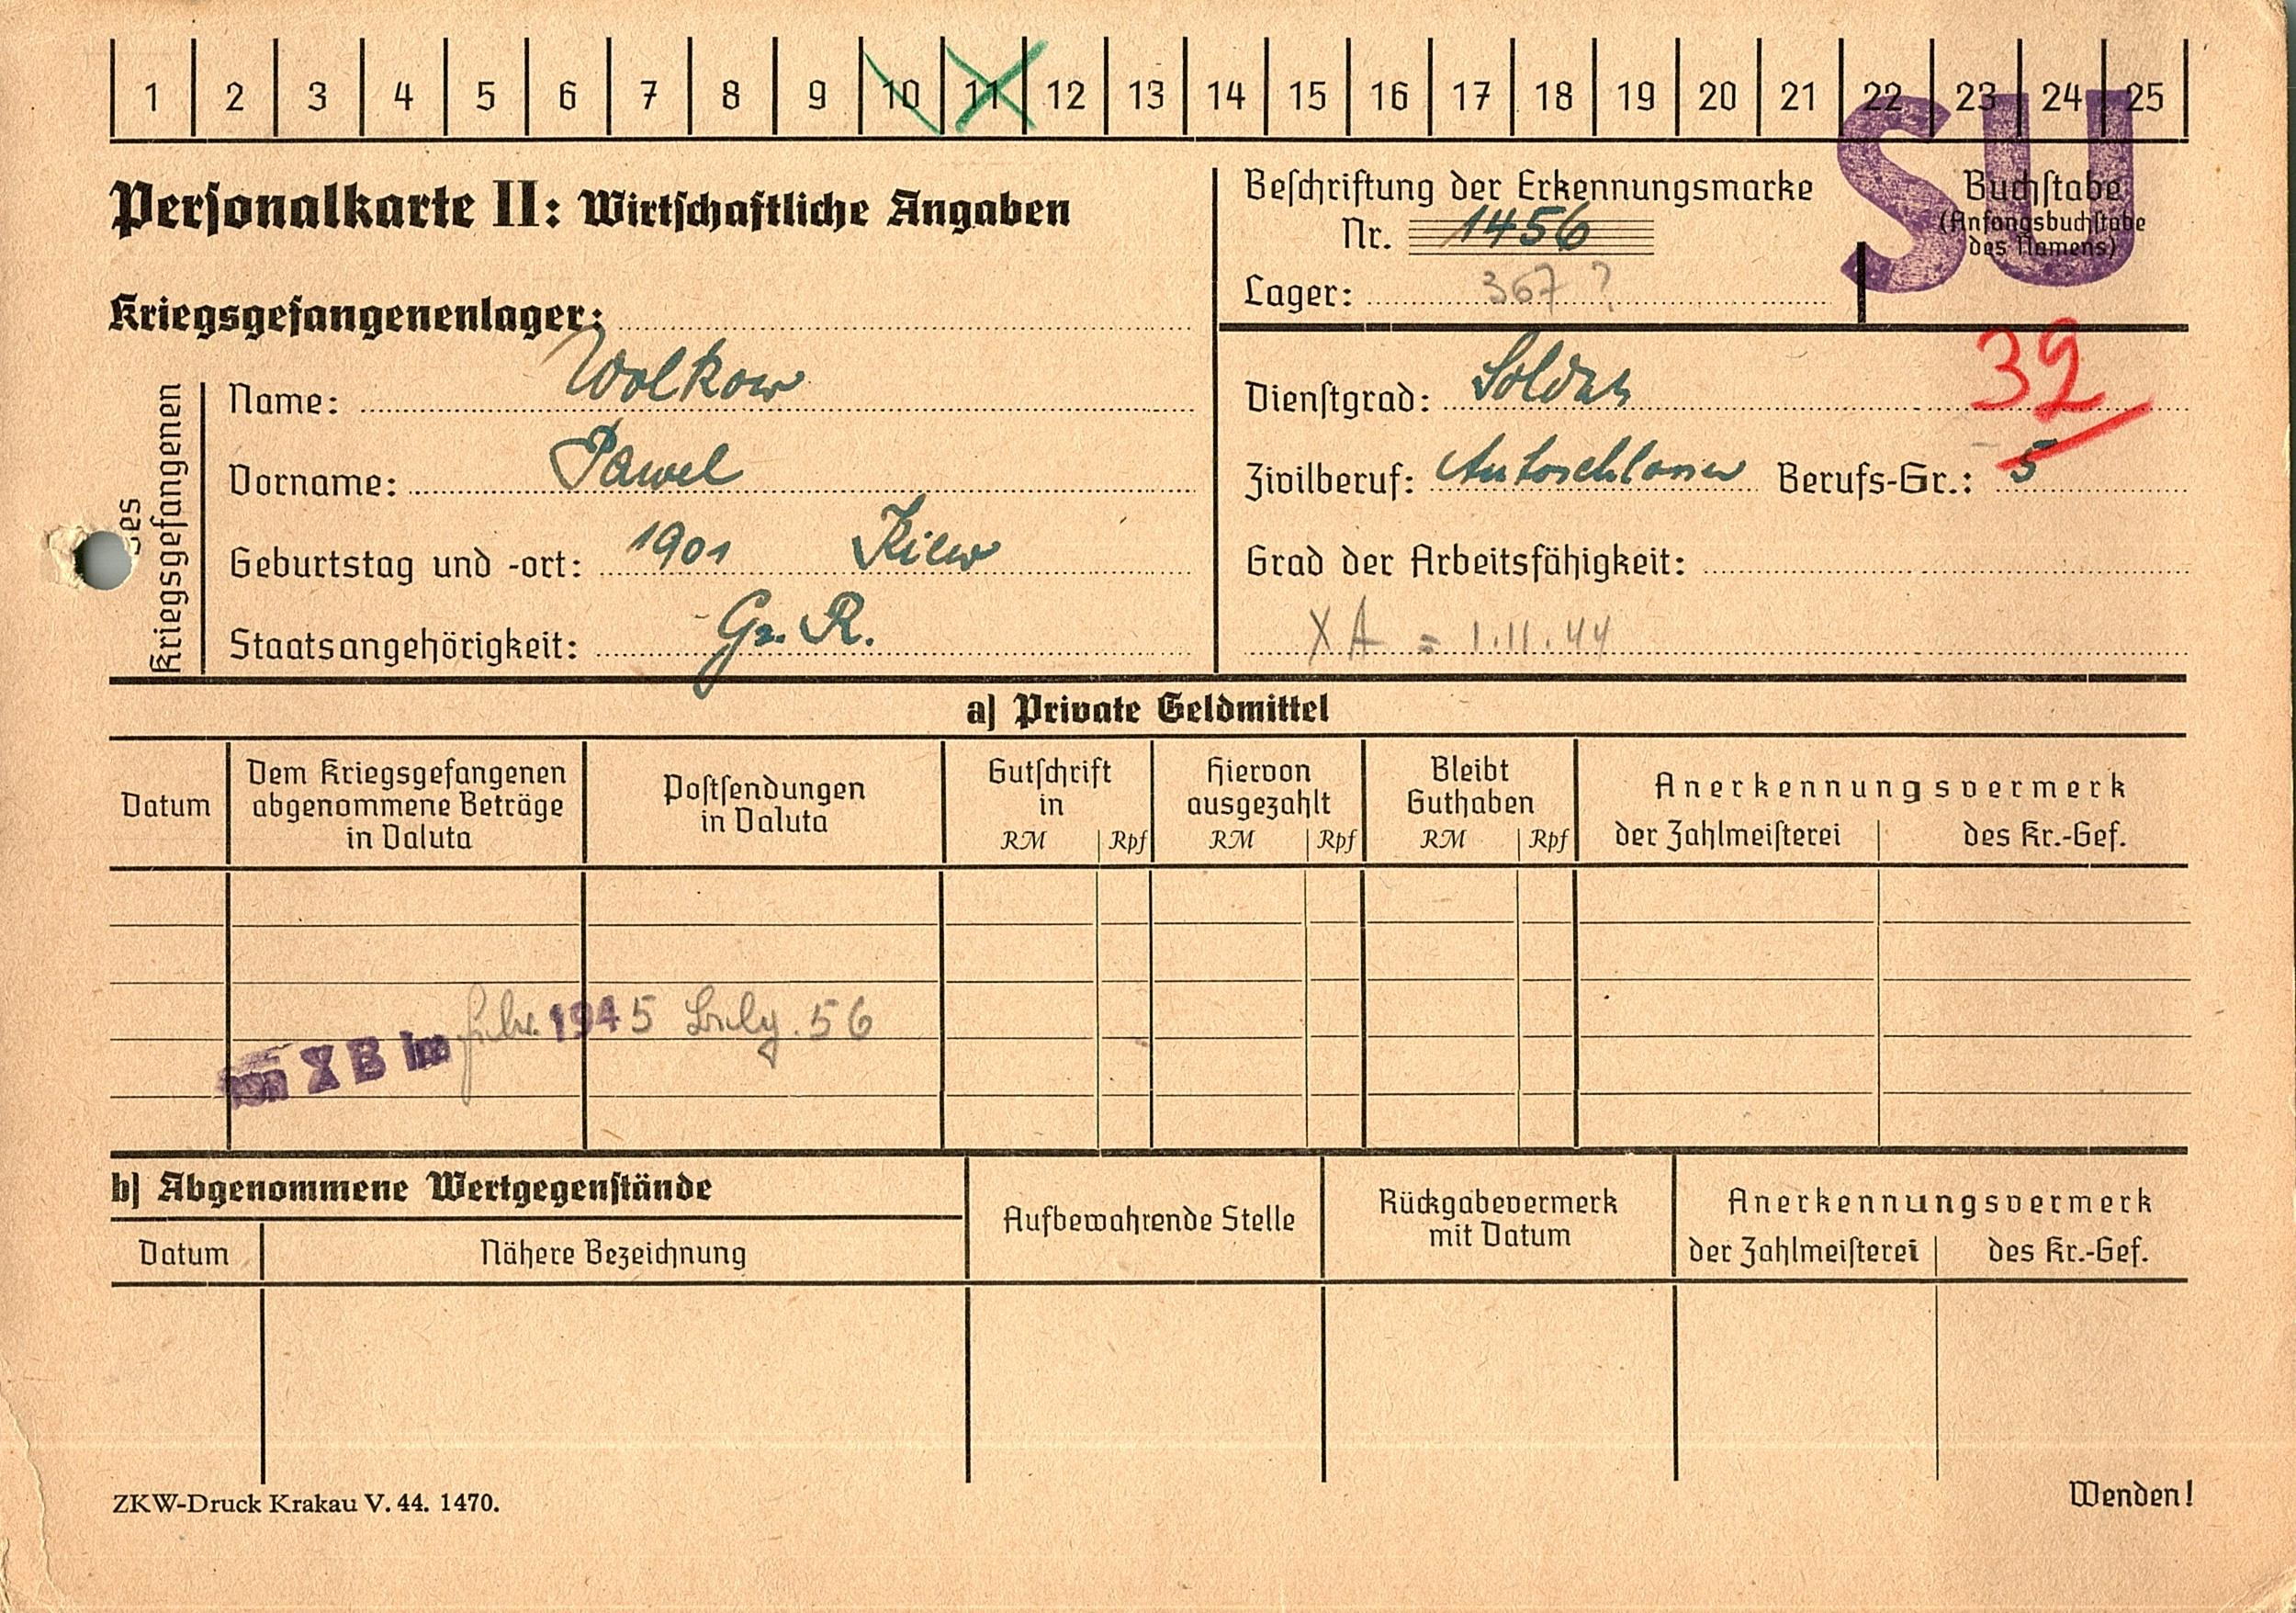 1 2 3 4 5 6 7 8 9 10 11 12 13 14 15 16 17 18 19 20 21 22 23 24 25
SU
Personalkarte II: Wirtschaftliche Angaben
Beschriftung der Erkennungsmarke
Nr. 1456
Lager: 367 ?
Buchstabe
(Anfangsbuchstabe
des Namens)
Kriegsgefangenenlager:
des
Kriegsgefangenen
Name: Wolkow
Vorname: Pawel
Geburtstag und -ort: 1901 Kiew
Staatsangehörigkeit: R.
32
Dienstgrad: Soldat
Zivilberuf: Autoschlosser Berufs-Gr.: 5
Grad der Arbeitsfähigkeit:
X A = 1.11.44
a) Private Geldmittel
Datum
Dem Kriegsgefangenen
abgenommene Beträge
in Valuta
Postsendungen
in Valuta
Gutschrift
in
RM Rpf
Hiervon
ausgezahlt
RM Rpf
Bleibt
Guthaben
RM Rpf
Anerkennungsvermerk
der Zahlmeisterei des Kr.-Gef.
von X B im 1945 56
b) Abgenommene Wertgegenstände
Datum Nähere Bezeichnung
Aufbewahrende Stelle
Rückgabevermerk
mit Datum
Anerkennungsvermerk
der Zahlmeisterei des Kr.-Gef.
ZKW-Druck Krakau V. 44. 1470.
Wenden!